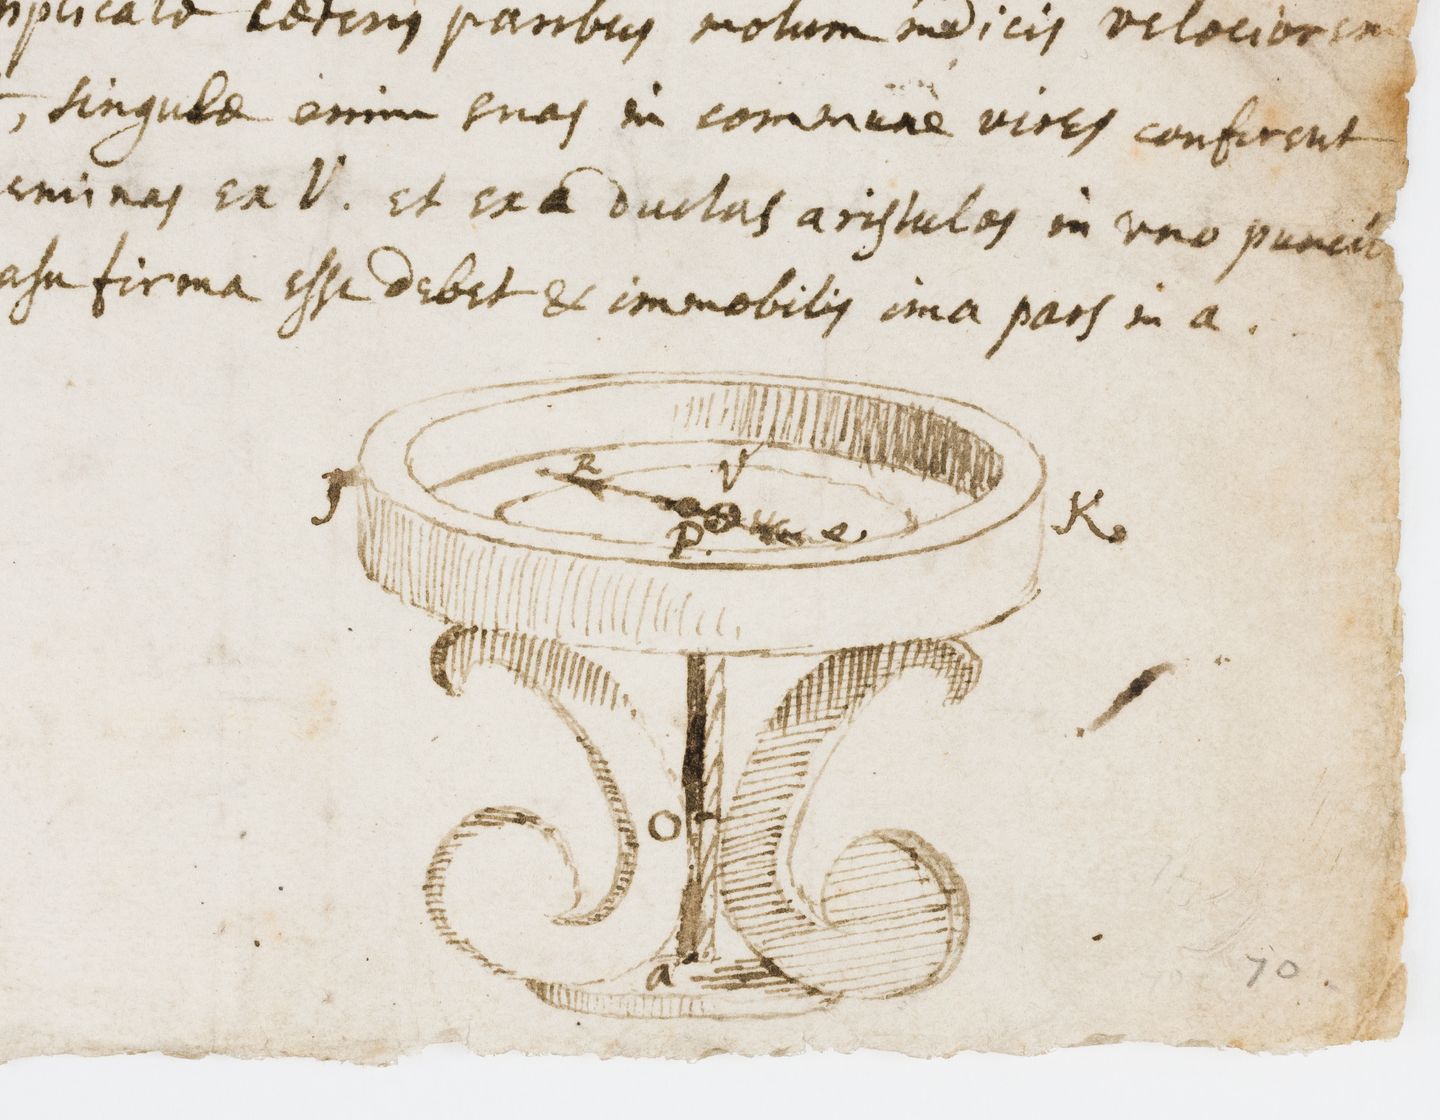 caeteris paribus motum indicis velociorem
singulae enim suas in commune vires conferent
ex V. et ex a ductas aristulas in uno punct
firma esse debet & immobilis ima pars in a.
R V
J K
P.
O
a
70